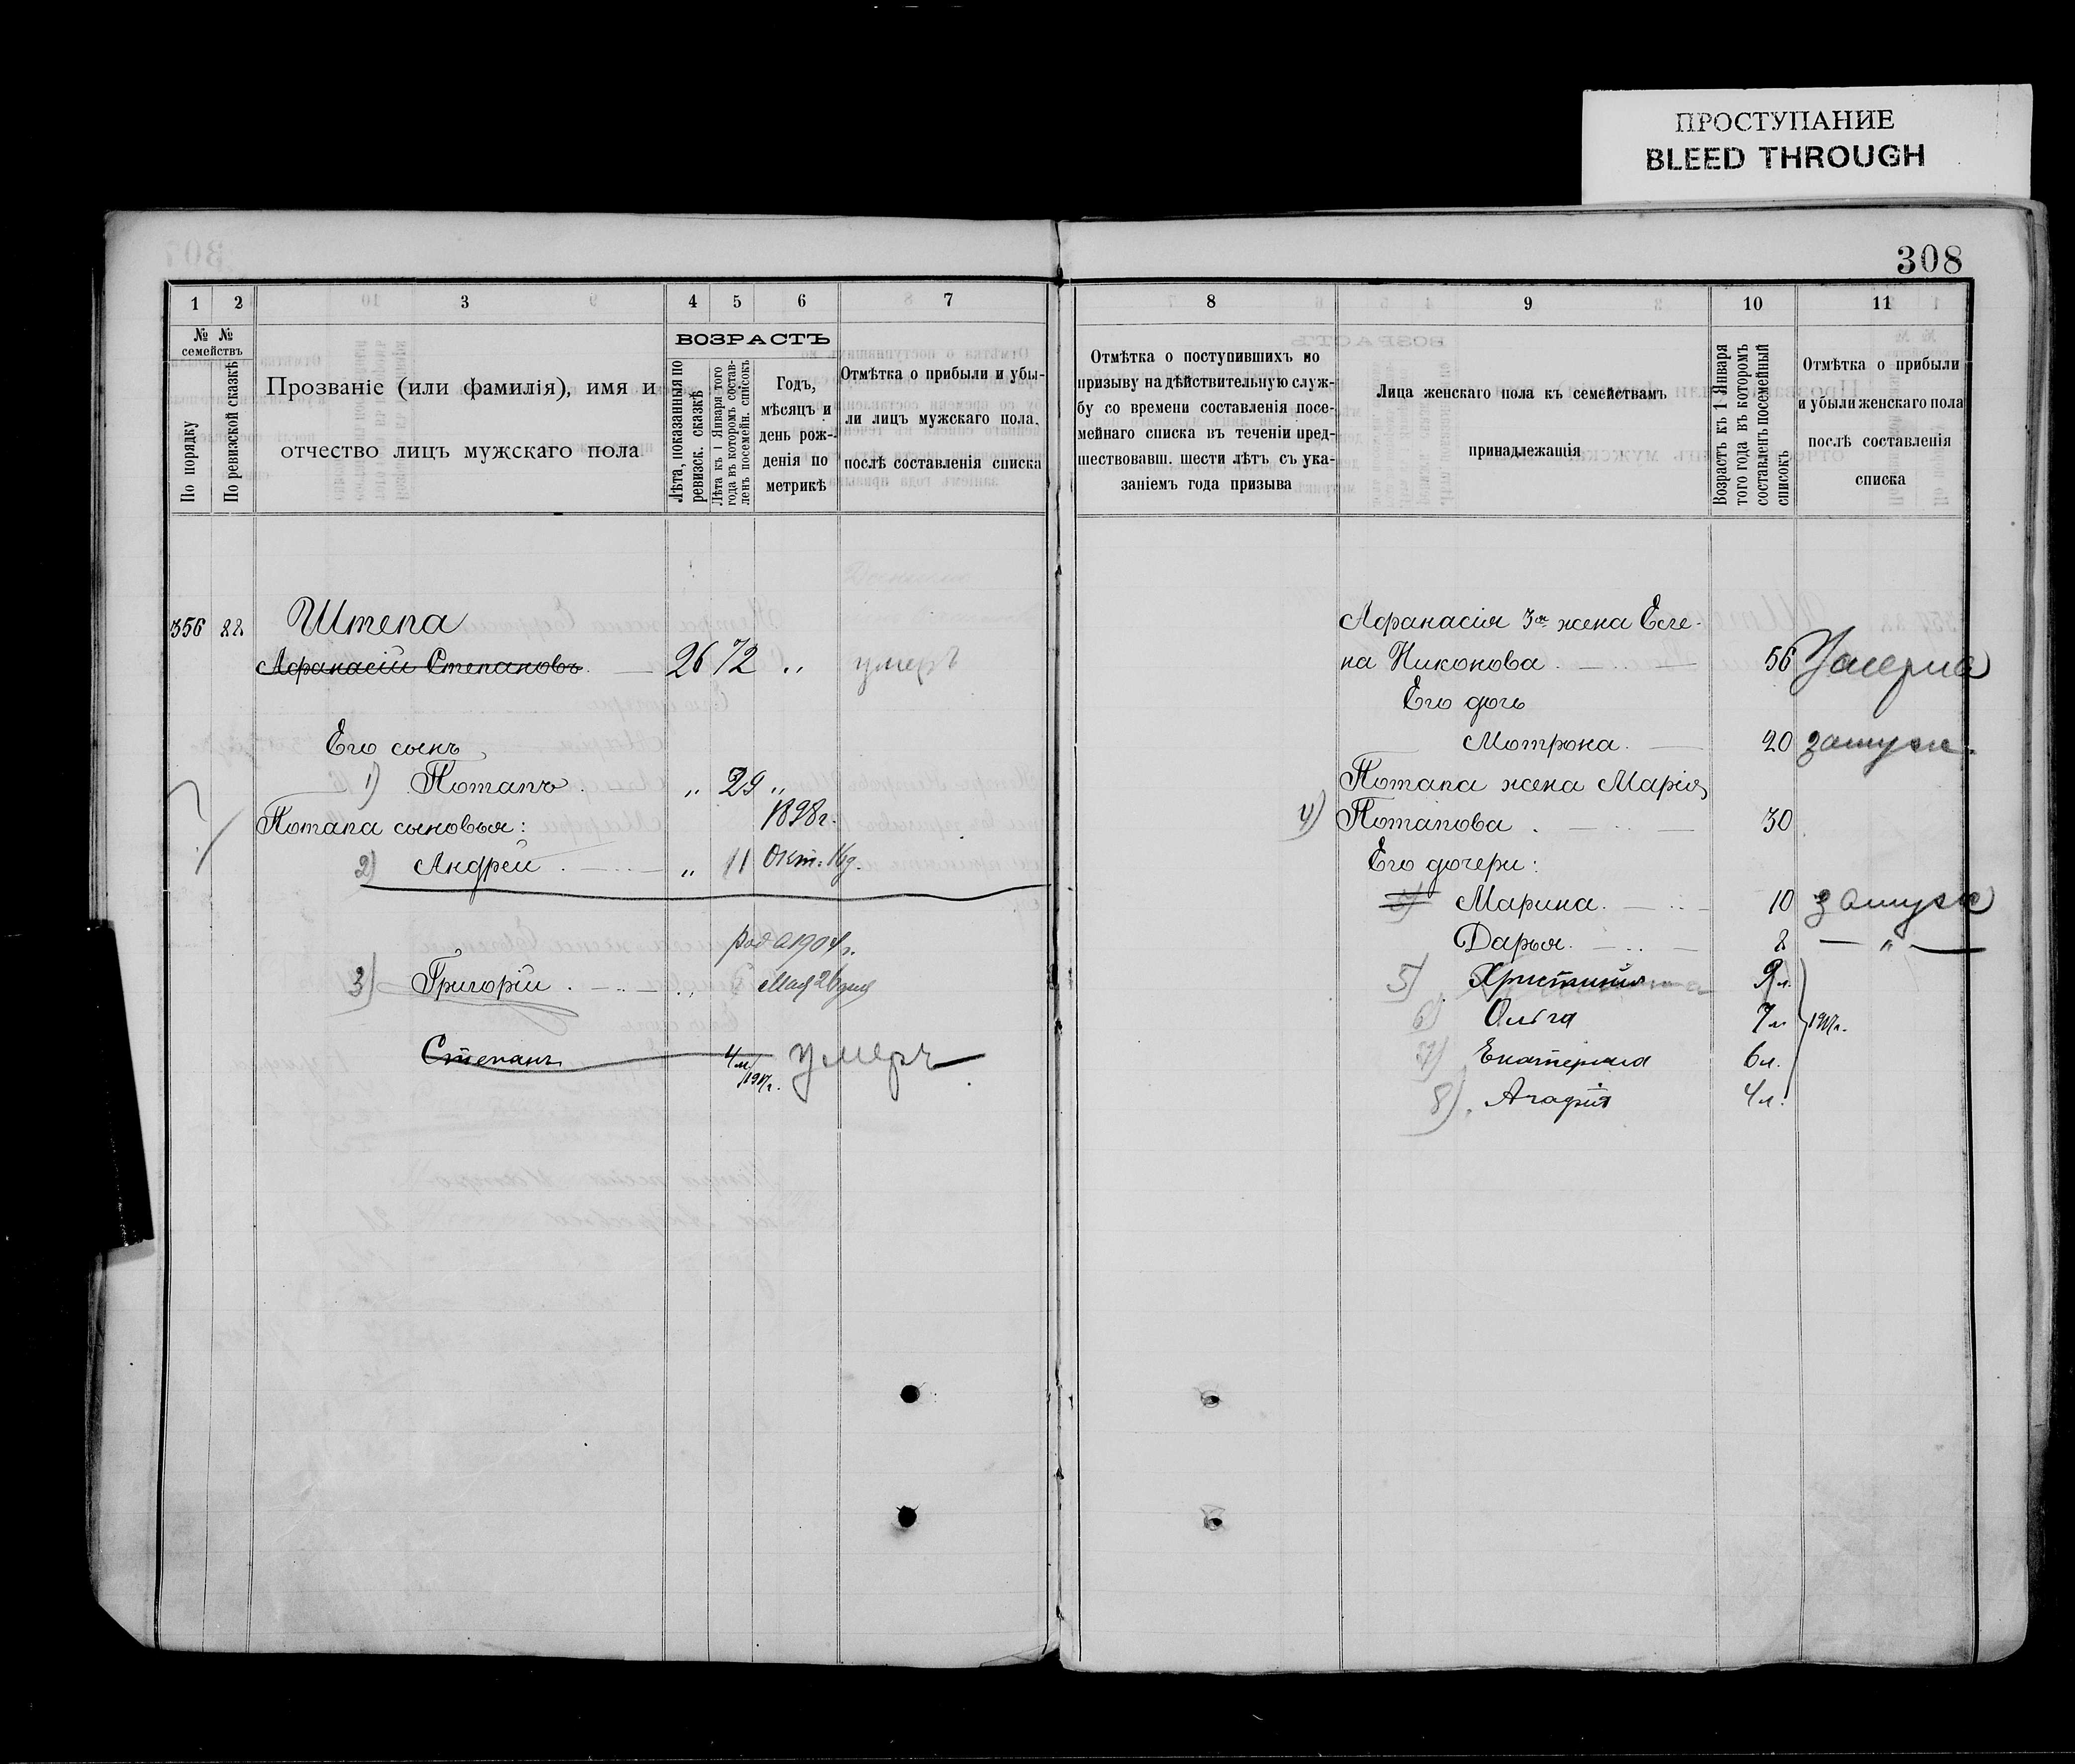 ПРОСТУПАНИЕ
BLEED THROUGH
308
1 2 3 4 5 6 7
№ № семействъ
По порядку
По ревизской сказкѣ
Прозваніе (или фамилія), имя и
отчество лицъ мужскаго пола
ВОЗРАСТЪ
Лѣта, показанныя по
ревизск. сказкѣ
Лѣта къ 1 Января того
года въ которомъ состав-
ленъ посемейн. списокъ
Годъ,
мѣсяцъ и
день рож-
денія по
метрикѣ
Отмѣтка о прибыли и убы-
ли лицъ мужскаго пола,
послѣ составленія списка
356 22 Штепа
Афанасій Степановъ 26 72 „ умеръ
Его сынъ
1) Потапъ „ 29 „
Потапа сыновья: 1898 г.
2) Андрей „ 11 Окт. 16 д.
род 1904 г.
3) Григорій „ Мая 26 дня
Степанъ 4 м 1917 г. умеръ
8 9 10 11
Отмѣтка о поступившихъ по
призыву на дѣйствительную служ-
бу со времени составленія посе-
мейнаго списка въ теченіи пред-
шествовавш. шести лѣтъ съ ука-
заніемъ года призыва
Лица женскаго пола къ семействамъ
принадлежащія
Возрастъ къ 1 Января
того года въ которомъ
составленъ посемейный
списокъ
Отмѣтка о прибыли
и убыли женскаго пола
послѣ составленія
списка
Афанасія 3я жена Еле-
на Никонова 56 Умерла
Его дочь
Мотрона 20 замуж.
Потапа жена Марія
4) Потапова 30
Его дочери:
5) Марина 10 замуж
Дарья 2 — „ —
5) Христинія 9 л.
6) Ольга 7 л 1917 г.
7) Екатерина 6 л.
8) Агафія 4 л.